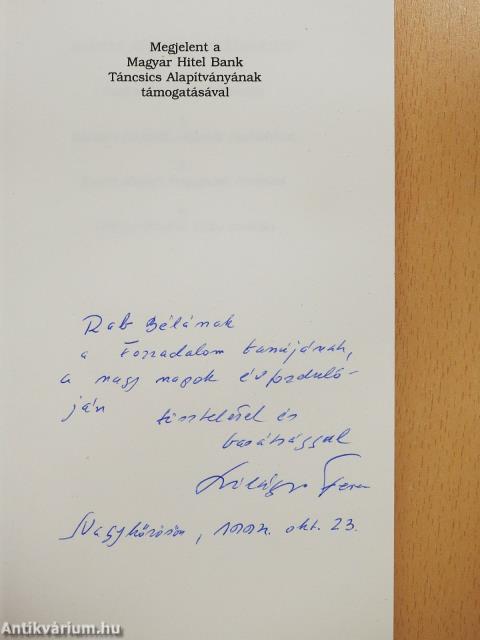 Megjelent a
Magyar Hitel Bank
Táncsics Alapítványának
támogatásával
Rab Bélának
a Forradalom tanújának,
a nagy napok évforduló-
ján tisztelettel és
barátsággal
Nagykőrösön, okt. 23.
Antikvárium.hu